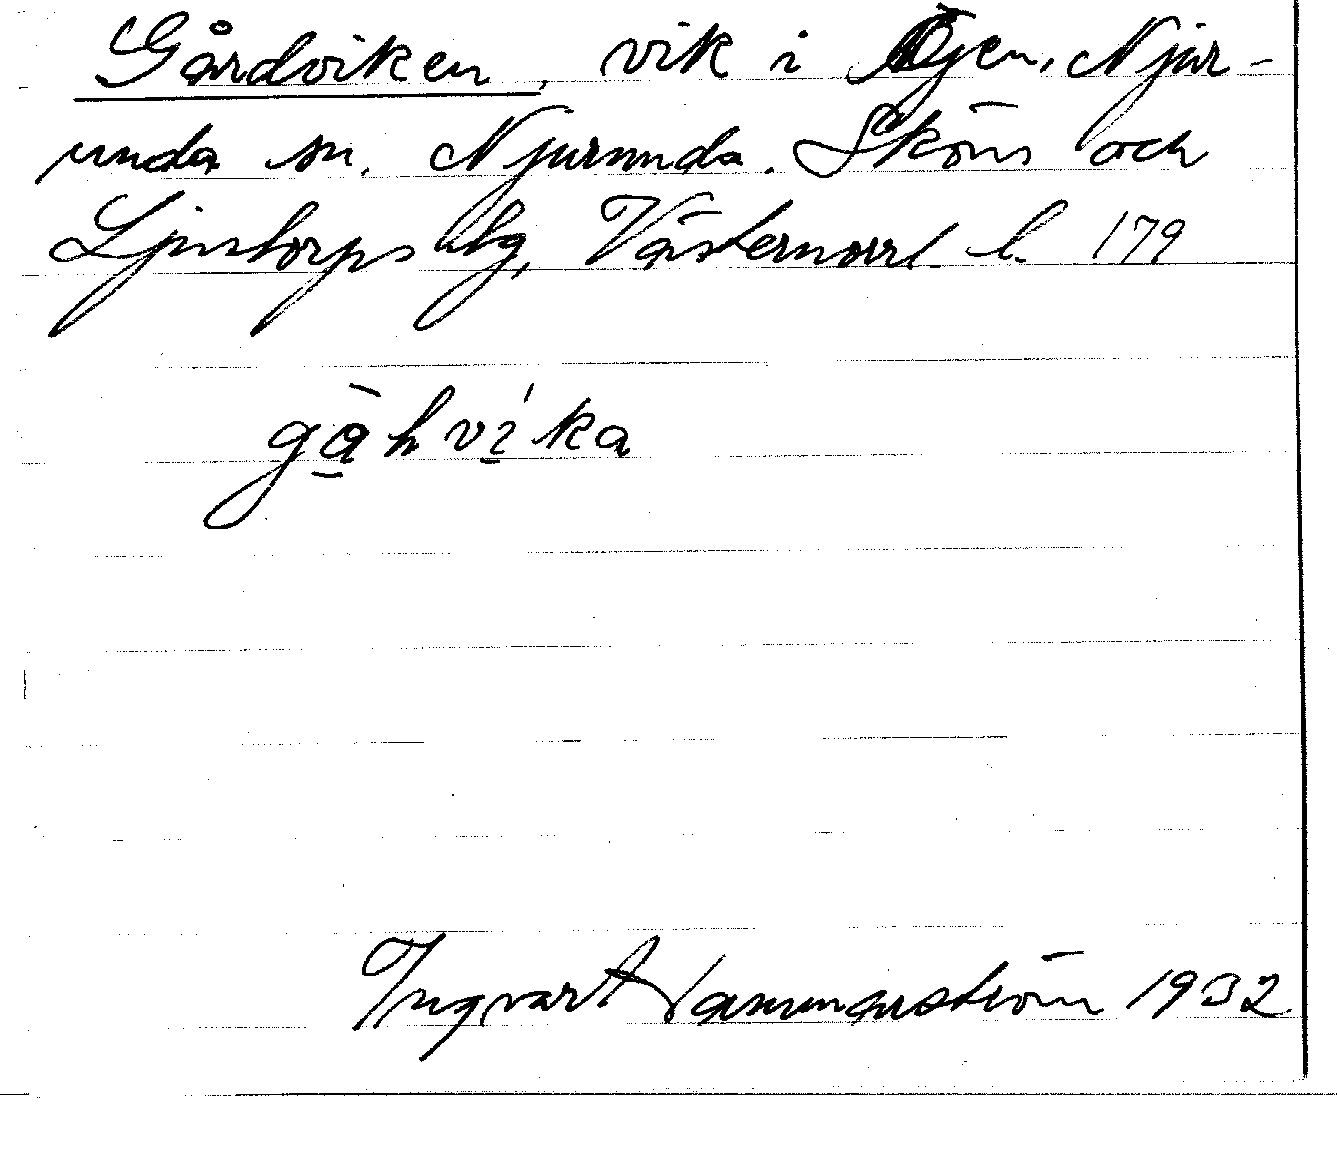 Gårdviken, vik i Öjen, Njur-
unda sn. Njurunda. Sköns och
Ljustorps tg, Västernorrl. l. 179
gåhvika
Ingvar Hammarström 1932